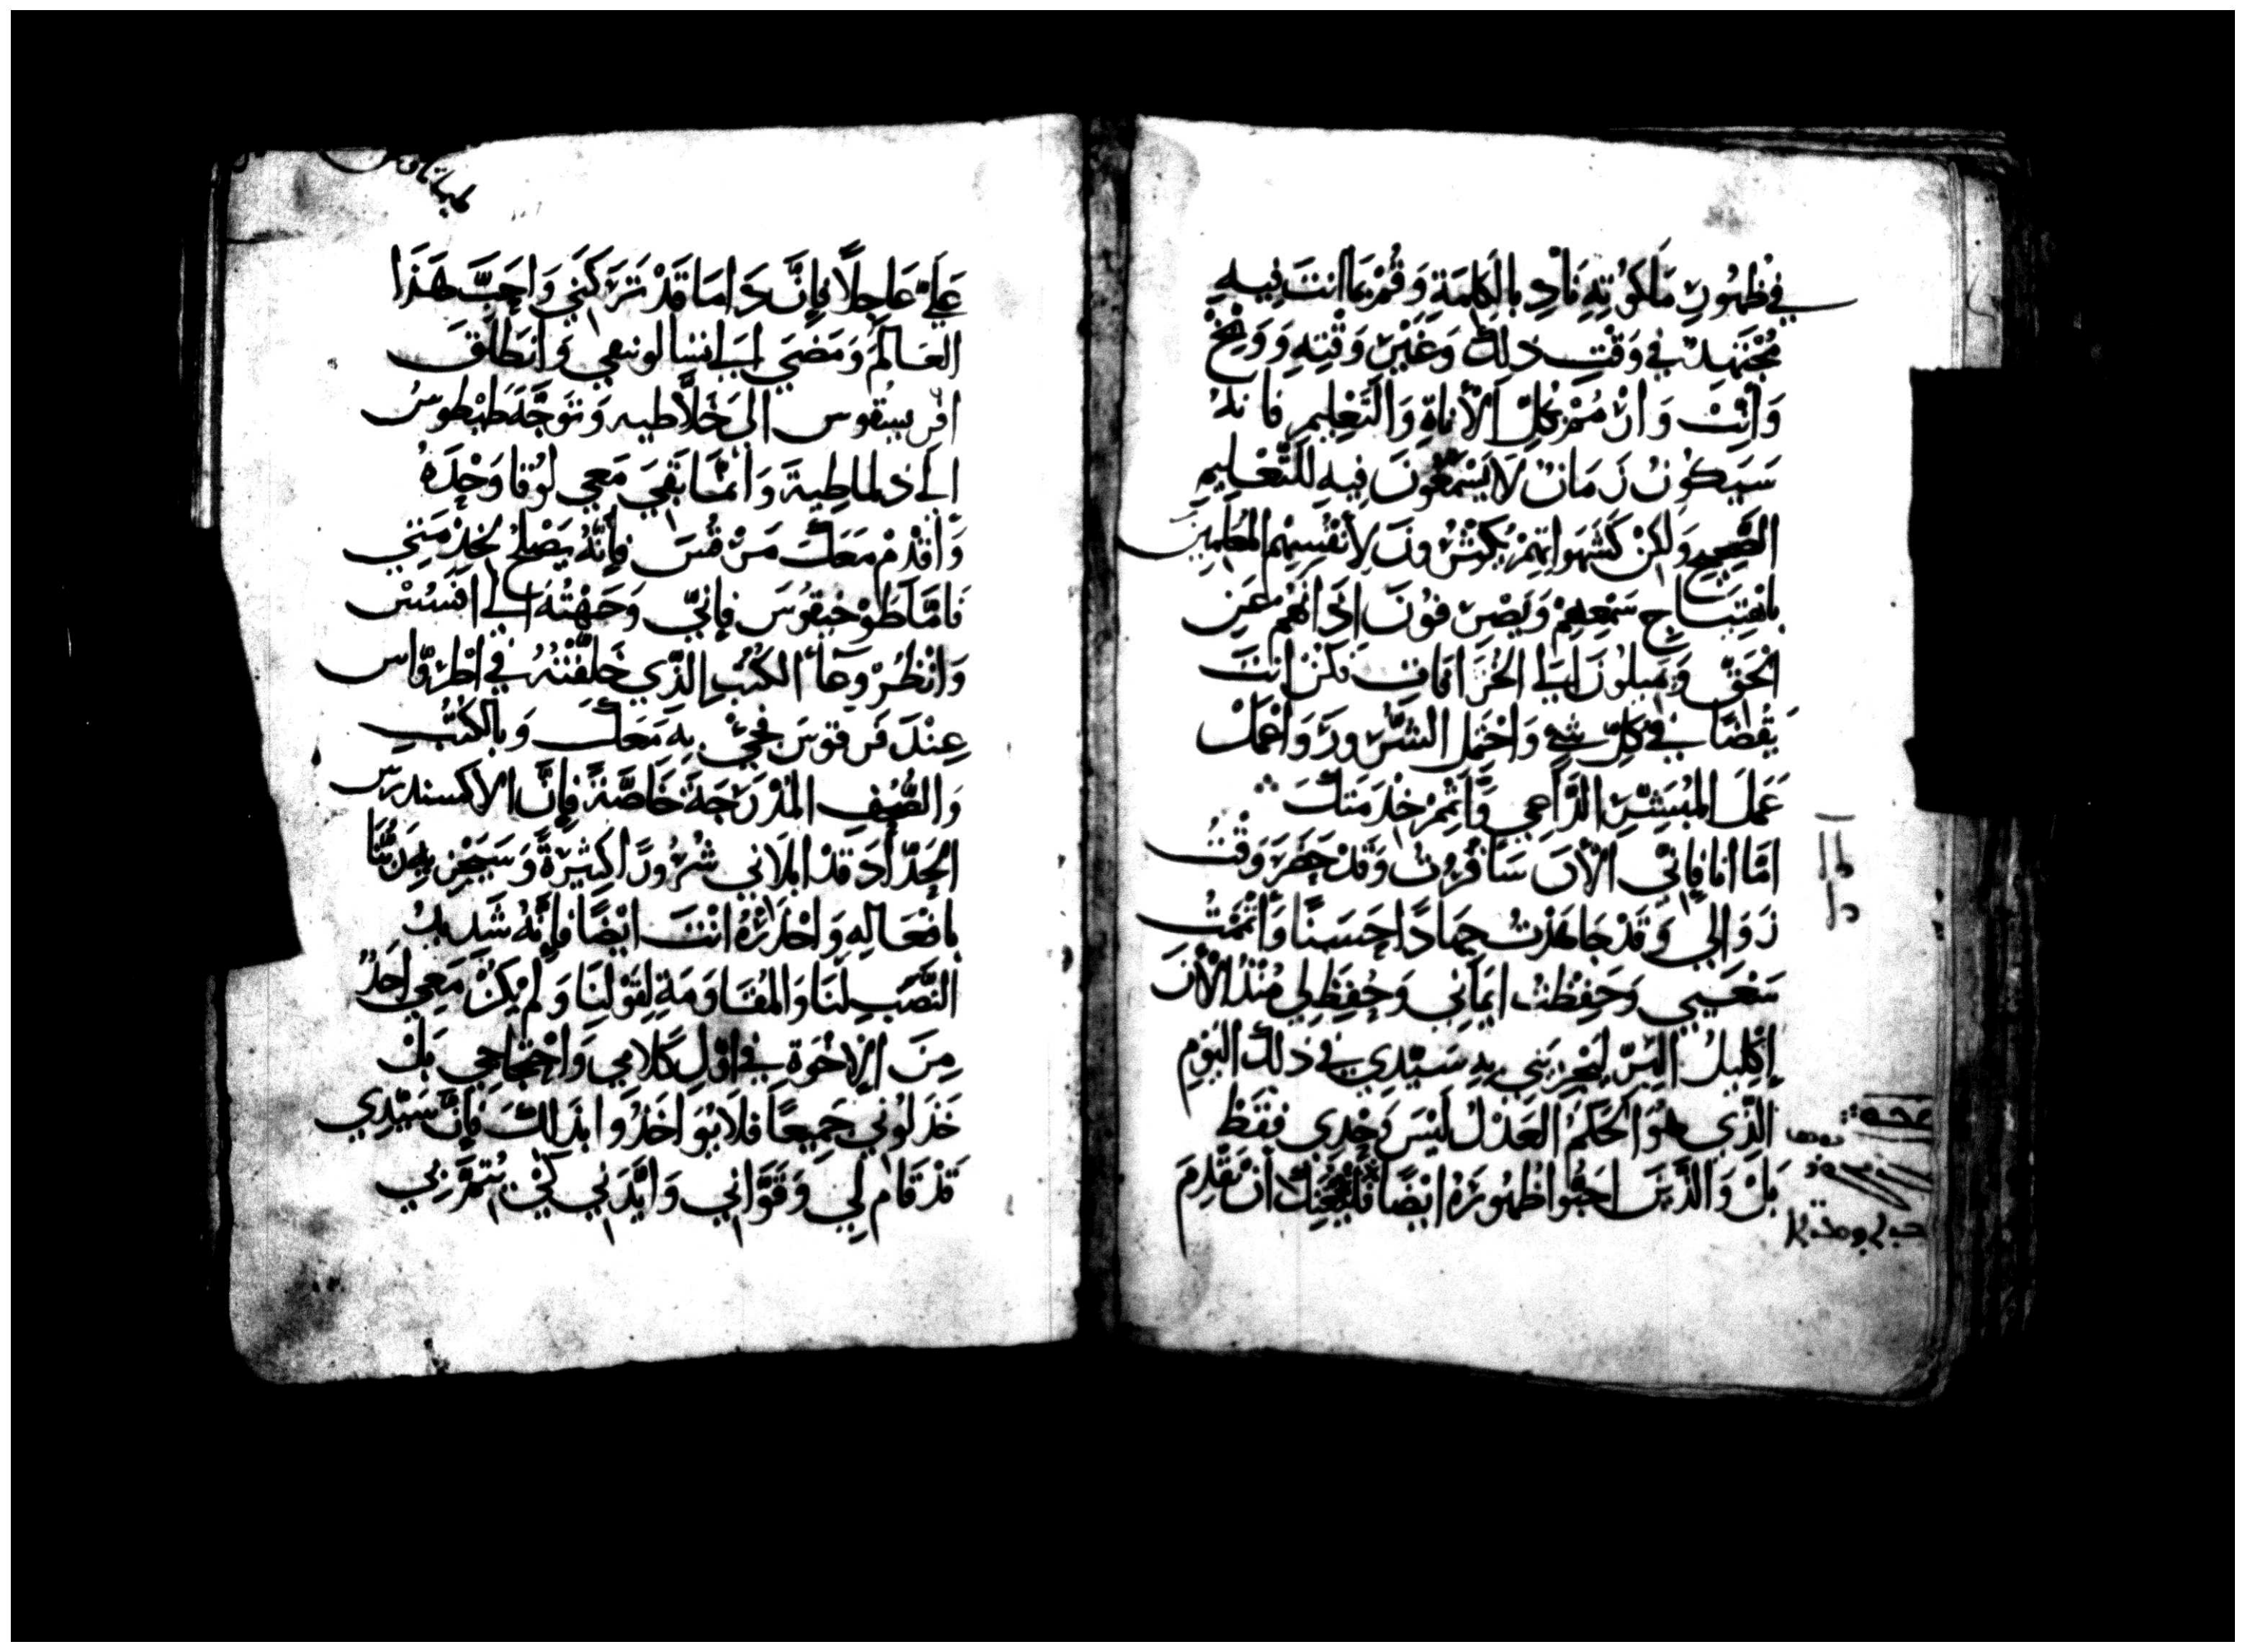 في ظهُورِ مَلَكُوُتِهِ نَادِ بالكَلمَةِ وَقُمْ بمَا انتَ فِيهِ
مُجْتَهِدٌ في وَقْتِ ذلِكَ وَغَيْرِ وَقْتِهِ وَوَبِّخْ
وَانّبْ وَانْ مُمْ بكلِ الأنَاةِ وَالتَعْلِيمِ فانهُ
سَيَكوُنُ زَمَانٌ لاَ يَسْمَعُونَ فِيهِ للتَّعْلِيمِ
الصَّحِيحِ وَلكِنْ كَشَهَواتِهِمْ يُكَثِّرُونَ لأنْفُسِهِم المُعَلِّمِينَ
سَمْعِهِمْ وَيَصْرِفُونَ اذَانَهُم عَنِ
الحَقِّ وَيَميلوُنَ اليَ الخُرَافَاتِ فكُنْ انتَ
يَقُضًا في كلِّ شيٍ وَاحْتَمِلِ الشُّرُورَ وَاعْمَلْ
عَمَلَ المُبَشِّرِ الدَّاعِي وَاتِمْ خِدْمَتَكَ
امَّا انا فإنّي الآنَ سَافُرُتُ وَقَدْ حَضَرَ وَقْتُ
زَوَالي وَقَدْ جَاهَدْتُ جِهَادًا حَسَنًا وَاتْمَمْتُ
سَعْيي وَحَفِظْتُ ايمَاني وَحُفِظَ لي مُنْذُ الآنَ
إكْلِيلُ البِرِّ ليَجْزِيَنِي بهِ سَيّدِي في ذلكَ اليَوْمِ
الذّي هُوَ الحَكمُ العَدْلُ ليْسَ وَحْدِي فقَطْ
بَلْ وَالذِّينَ احَبُّوا ظهُورَهُ ايْضًا أنْ تَقْدِمَ
عَليَّ عَاجِلاً فإنَّ دَامَا قَدْ تَرَكَنِي وَاحَبَّ هَذَا
العَالمَ وَمَضَي الي اتسالونيقي وَانطلَقَ
اقريسقوس الىَ غَلاَطيه وَتوَجَّهَ طيطوسُ
الي دلماطِيةَ وَانَّمَا بَقيَ مَعي لوُقا وَحْدَهُ
وَاقْدِمْ مَعَكَ مَرْقُسَ فإنَّهُ يَصْلُحُ لخِدْمَتِي
فَامَّا طوُخيقوُسَ فإنيّ وَجَهْتُهُ الي افَسُسْ
وَانْظُرْ وِعَاَ الكتُبِ الذّي خَلَّفْتُهُ في اطْرَوَّاس
عِنْدَ قَرفوُسَ فجَيْ بهِ مَعَكَ وَبالكتُبِ
وَالصُّحُفِ المُدْرَجَةَ خَاصَّةً فإنَّ الاكسندرس
الحَدَّادَ قدْ ابْلاَني شُرُورًا كثِيرَةً وَسَيَجْزِيهِ رَبُّنَا
بافعَالِهِ وَاحْذَرْهُ انْتَ ايْضًا فإنَّهُ شَدِيدُ
النَّصْبِ لنَا وَالمُقَاوَمَةِ لِقَوْلنَا وَلم يكُنْ مَعِي احَدٌ
مِنَ الإخْوَةِ في اوّلِ كَلامِي وَاحْتجَاجِي بَلْ
خَذَلوُني جَمِيعًا فَلاَ يُوَاخَذُوا بذَلكَ فإنَّ سَيّدِي
قَدْ قَامَ لي وَقوَّاني وَايَّدَنِي كيْ تتِمَّ بي